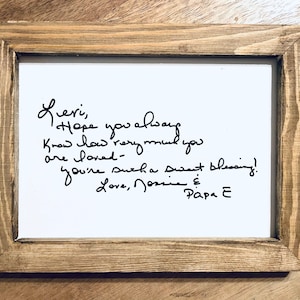 Levi,
Hope you always
Know how very much you
are loved-
you're such a sweet blessing!
Love, &
Papa E